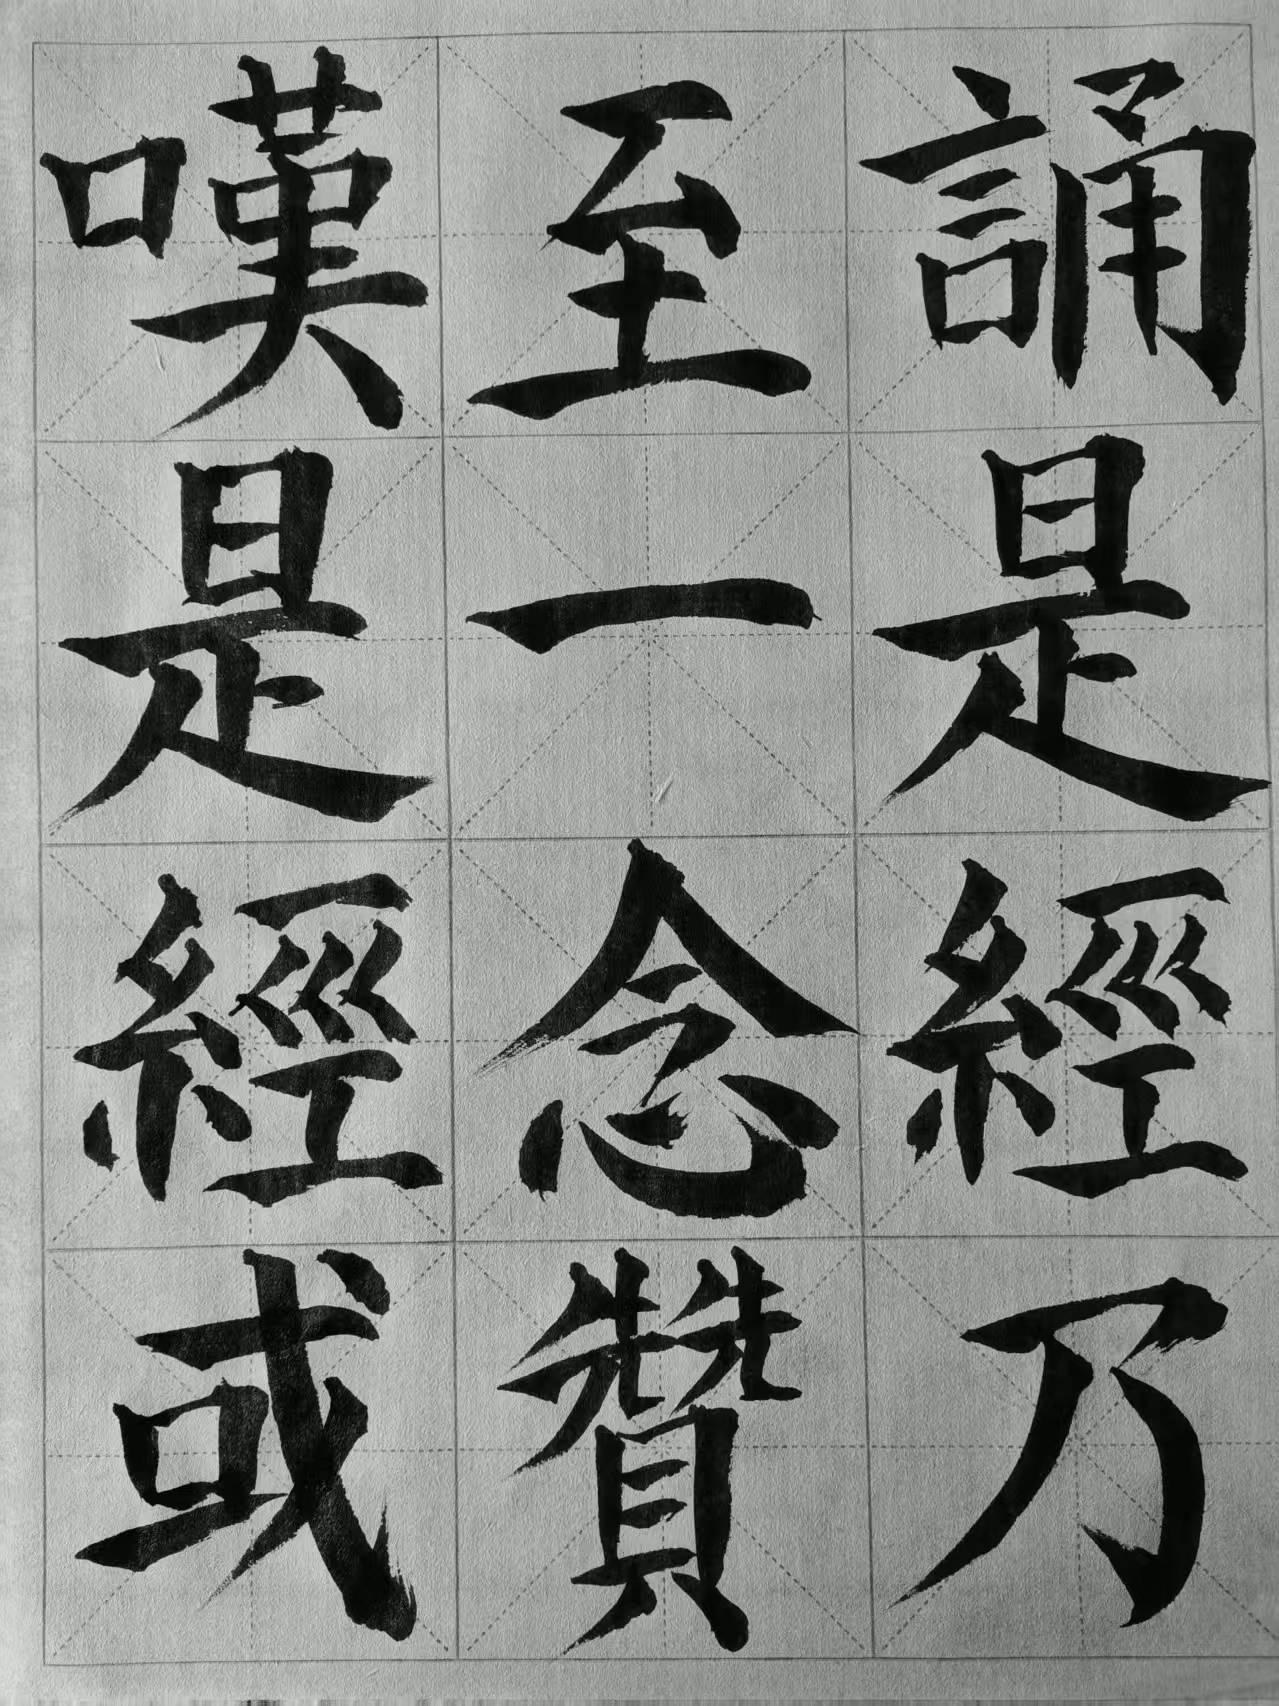 誦是經乃
至一念贊
嘆是經或